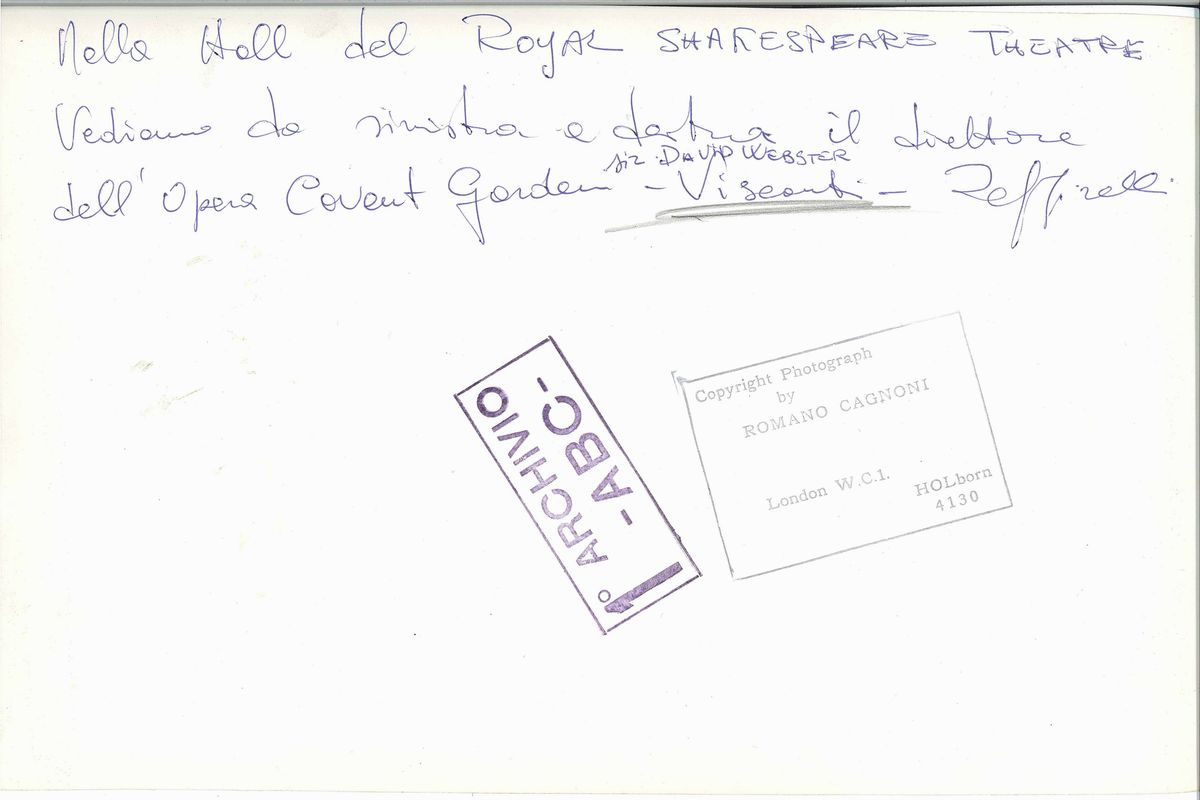 Nella Hall del ROYAL SHAKESPEARE THEATRE
Vediamo da sinistra a destra il direttore
sir DAVID WEBSTER
dell'Opera Covent Garden - Visconti - Zeffirelli
1° ARCHIVIO
- ABC -
Copyright Photograph
by
ROMANO CAGNONI
London W.C.1.
HOLborn
4130